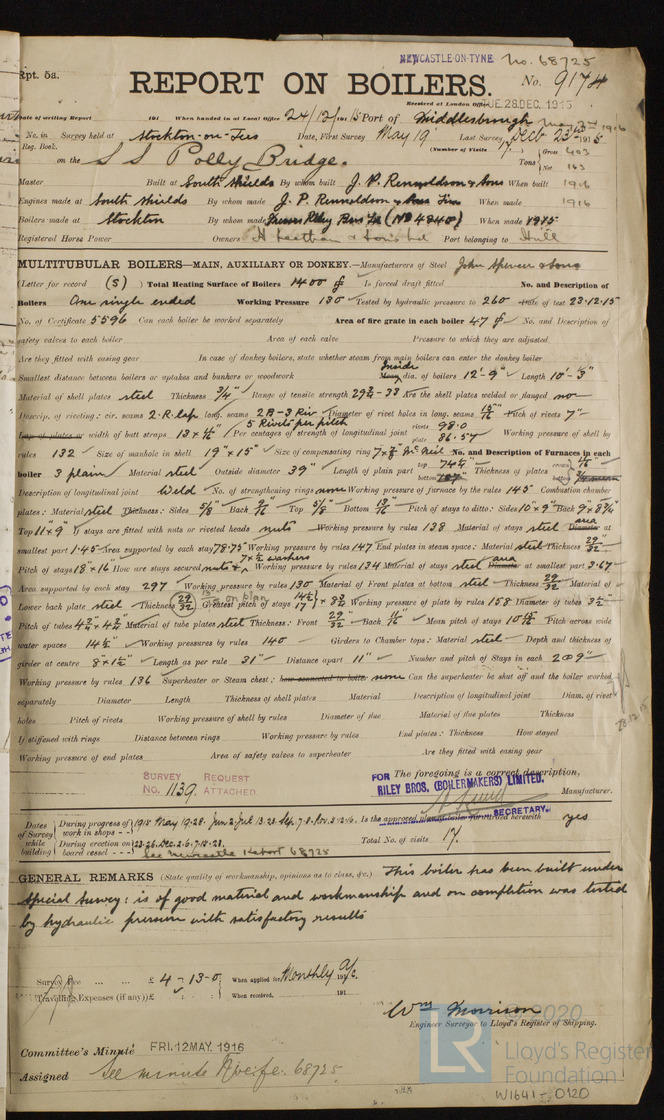 NEWCASTLE-ON-TYNE No. 68725
Rpt. 5a.
REPORT ON BOILERS. No. 9174
Received at London Office TUE. 28. DEC. 1915
Date of writing Report 191 When handed in at Local Office 24/12/1915 Port of Middlesbrough
No. in Survey held at Stockton-on-Tees Date, First Survey May 19 Last Survey Decb 23rd 1915
Reg. Book. (Number of Visits 17)
on the S S Polly Bridge. Tons Gross 403 Net 163
Master Built at South Shields By whom built J. P. Rennoldson & Sons When built 1916
Engines made at South Shields By whom made J. P. Rennoldson & Sons Lim When made 1916
Boilers made at Stockton By whom made Messrs Riley Bros Ld (No 4840) When made 1915
Registered Horse Power Owners Port belonging to Hull
MULTITUBULAR BOILERS—MAIN, AUXILIARY OR DONKEY.—Manufacturers of Steel John Spencer & Sons
(Letter for record (S) ) Total Heating Surface of Boilers 1400 Is forced draft fitted No. and Description of
Boilers One single ended Working Pressure 130 Tested by hydraulic pressure to 260 Date of test 23.12.15
No. of Certificate 5596 Can each boiler be worked separately Area of fire grate in each boiler 47 No. and Description of
safety valves to each boiler Area of each valve Pressure to which they are adjusted
Are they fitted with easing gear In case of donkey boilers, state whether steam from main boilers can enter the donkey boiler
Smallest distance between boilers or uptakes and bunkers or woodwork Inside dia. of boilers 12'-9" Length 10'-3"
Material of shell plates steel Thickness 3/4" Range of tensile strength 29½-33 Are the shell plates welded or flanged no
Descrip. of riveting: cir. seams 2.R.lap long. seams 2B-3Riv Diameter of rivet holes in long. seams 15/16" Pitch of rivets 7"
5 Rivets per pitch
Lap of plates or width of butt straps 13 × Per centages of strength of longitudinal joint rivets 98.0 plate 86.57 Working pressure of shell by
rules 132 Size of manhole in shell 19" × 15" Size of compensating ring McNeil No. and Description of Furnaces in each
boiler 3 plain Material steel Outside diameter 39" Length of plain part top bottom Thickness of plates crown bottom
Description of longitudinal joint Weld No. of strengthening rings none Working pressure of furnace by the rules 145 Combustion chamber
plates: Material steel Thickness: Sides Back 9/16 Top Bottom Pitch of stays to ditto: Sides 10" × 9" Back 9 × 8¾"
Top 11" × 9" If stays are fitted with nuts or riveted heads nuts Working pressure by rules 138 Material of stays steel area at
smallest part 1.45 Area supported by each stay 78.75 Working pressure by rules 147 End plates in steam space: Material steel Thickness 29/32
Pitch of stays 18" × 16 How are stays secured nuts & washers Working pressure by rules 134 Material of stays steel area at smallest part 3.67
Area supported by each stay 297 Working pressure by rules 130 Material of Front plates at bottom steel Thickness 29/32 Material of
Lower back plate steel Thickness 29/32 on plan Greatest pitch of stays 14½ 17 × 8¾ Working pressure of plate by rules 158 Diameter of tubes 3½"
Pitch of tubes 4¾ × 4¾ Material of tube plates steel Thickness: Front 29/32 Back 11/16 Mean pitch of stays Pitch across wide
water spaces 14½" Working pressures by rules 140 Girders to Chamber tops: Material steel Depth and thickness of
girder at centre 8" × 1½" Length as per rule 31" Distance apart 11" Number and pitch of Stays in each 2 @ 9"
Working pressure by rules 136 Superheater or Steam chest; how connected to boiler none Can the superheater be shut off and the boiler worked
separately Diameter Length Thickness of shell plates Material Description of longitudinal joint Diam. of rivet
holes Pitch of rivets Working pressure of shell by rules Diameter of flue Material of flue plates Thickness
If stiffened with rings Distance between rings Working pressure by rules End plates: Thickness How stayed
Working pressure of end plates Area of safety valves to superheater Are they fitted with easing gear
28.12.15
SURVEY REQUEST
No. 1139. ATTACHED.
The foregoing is a correct description,
FOR RILEY BROS. (BOILERMAKERS) LIMITED.
Manufacturer.
SECRETARY.
Dates of Survey while building
During progress of work in shops - - 1915 May 19.28. Jun. 2. Jul. 13.23.
During erection on board vessel - - -
See Newcastle Report 68725
Is the approved plan of boiler forwarded herewith yes
Total No. of visits 17.
GENERAL REMARKS (State quality of workmanship, opinions as to class, &c.) This boiler has been built under
special survey: is of good material and workmanship and on completion was tested
by hydraulic pressure with satisfactory results
Survey Fee ... ... £ 4 - 13 - 0 When applied for Monthly a/c 191
Travelling Expenses (if any) £ : : When received, 191
Wm Morrison
Engineer Surveyor to Lloyd's Register of Shipping.
Committee's Minute FRI. 12 MAY. 1916
Assigned See minute 68725.
© 2020
LR Lloyd's Register
Foundation
W1641-0120